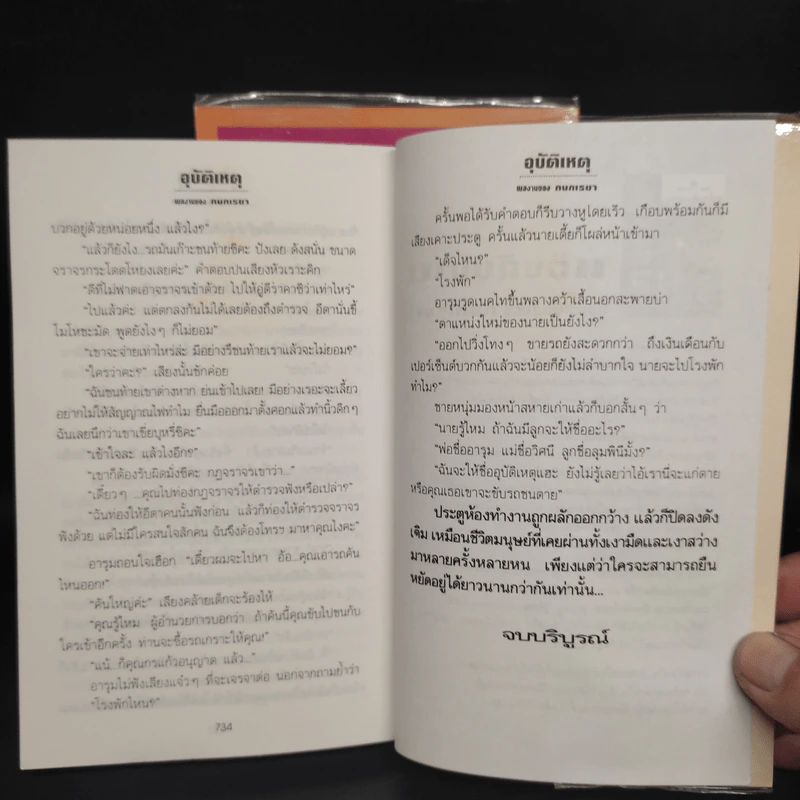 อุบัติเหตุ
ผลงานของ กนกเรขา
บวกอยู่ด้วยหน่อยหนึ่ง แล้วไง?”
“แล้วก็ยังไง...รถมันเก๊าะชนท้ายซิคะ ปังเลย ดังสนั่น ขนาด
จราจรกระโดดโหยงเลยค่ะ” คำตอบปนเสียงหัวเราะคิก
“ดีที่ไม่ฟาดเอาจราจรเข้าด้วย ไปให้อู่ตีราคาซิว่าเท่าไหร่”
“ไปแล้วค่ะ แต่ตกลงกันไม่ได้เลยต้องถึงตำรวจ อีตานั่นขี้
โมโหชะมัด พูดยังไงๆ ก็ไม่ยอม”
“เขาจะจ่ายเท่าไหร่ล่ะ มีอย่างรึชนท้ายเราแล้วจะไม่ยอม?”
“ใครว่าคะ?” เสียงนั้นชักค่อย
“ฉันชนท้ายเขาต่างหาก ย่นเข้าไปเลย! มีอย่างเรอะจะเลี้ยว
อยากไม่ให้สัญญาณไฟทำไม ยื่นมือออกมาตั้งศอกแล้วทำนิ้วดิกๆ
ฉันเลยนึกว่าเขาเขี่ยบุหรี่ซิคะ”
“เข้าใจละ แล้วไงอีก?”
“เขาก็ต้องรับผิดมั่งซิคะ กฎจราจรเขาว่า...”
“เดี๋ยวๆ ...คุณไปท่องกฎจราจรให้ตำรวจฟังหรือเปล่า?”
“ฉันท่องให้อีตาคนนั้นฟังก่อน แล้วก็ท่องให้ตำรวจจราจร
ฟังด้วย แต่ไม่มีใครสนใจสักคน ฉันจึงต้องโทรฯ มาหาคุณไงคะ”
อารุมถอนใจเฮือก “เดี๋ยวผมจะไปหา อ้อ...คุณเอารถคัน
ไหนออก!”
“คันใหญ่ค่ะ” เสียงคล้ายเด็กจะร้องไห้
“คุณรู้ไหม ผู้อำนวยการบอกว่า ถ้าคันนี้คุณขับไปชนกับ
ใครเข้าอีกครั้ง ท่านจะซื้อรถเกราะให้คุณ!”
“แน้...ก็คุณกรแก้วอนุญาต แล้ว...”
อารุมไม่ฟังเสียงแจ๋วๆ ที่จะเจรจาต่อ นอกจากถามย้ำว่า
“โรงพักไหน?”
734
อุบัติเหตุ
ผลงานของ กนกเรขา
ครั้นพอได้รับคำตอบก็รีบวางหูโดยเร็ว เกือบพร้อมกันก็มี
เสียงเคาะประตู ครั้นแล้วนายเตี้ยก็โผล่หน้าเข้ามา
“เด็จไหน?”
“โรงพัก”
อารุมรูดเนคไทขึ้นพลางคว้าเสื้อนอกสะพายบ่า
“ตาแหน่งใหม่ของนายเป็นยังไง?”
“ออกไปวิ่งโทงๆ ขายรถยังสะดวกกว่า ถึงเงินเดือนกับ
เปอร์เซ็นต์บวกกันแล้วจะน้อยก็ยังไม่ลำบากใจ นายจะไปโรงพัก
ทำไม?”
ชายหนุ่มมองหน้าสหายเก่าแล้วก็บอกสั้นๆ ว่า
“นายรู้ไหม ถ้าฉันมีลูกจะให้ชื่ออะไร?”
“พ่อชื่ออารุม แม่ชื่อวิศนี ลูกชื่อลุมพินีมั้ง?”
“ฉันจะให้ชื่ออุบัติเหตุแฮะ ยังไม่รู้เลยว่าไอ้เรานี่จะแก่ตาย
หรือคุณเธอเขาจะขับรถชนตาย”
ประตูห้องทำงานถูกผลักออกกว้าง แล้วก็ปิดลงดัง
เดิม เหมือนชีวิตมนุษย์ที่เคยผ่านทั้งเงามืดและเงาสว่าง
มาหลายครั้งหลายหน เพียงแต่ว่าใครจะสามารถยืน
หยัดอยู่ได้ยาวนานกว่ากันเท่านั้น...
จบบริบูรณ์